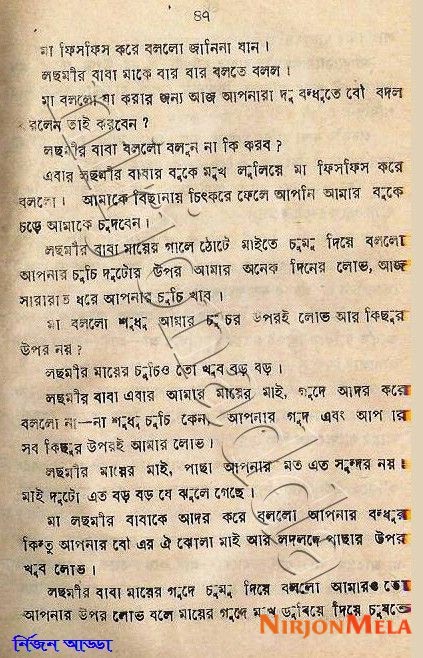 ৪৭
মা ফিসফিস করে বললো জানিনা যান।
লছমীর বাবা মাকে বার বার বলতে বলল।
মা বললো যা করার জন্য আজ আপনারা দু বন্ধুতে বৌ বদল
করলেন তাই করবেন?
লছমীর বাবা বললো বলুন না কি করব?
এবার লছমীর বাবার বুকে মুখ লুলিয়ে মা ফিসফিস করে
বললো। আমাকে বিছানায় চিৎকরে ফেলে আপনি আমার বুকে
চড়ে আমাকে চুদবেন।
লছমীর বাবা মায়ের গালে ঠোটে মাইতে চুমু দিয়ে বললো
আপনার চুচি দুটোর উপর আমার অনেক দিনের লোভ, আজ
সারারাত ধরে আপনার চুচি খাব।
মা বললো শুধু আমার চুচির উপরই লোভ আর কিছুর
উপর নয়?
লছমীর মায়ের চুচিও তো খুব বড় বড়।
লছমীর বাবা এবার আমার মায়ের মাই, গুদে আদর করে
বললো না—না শুধু চুচি কেন, আপনার গুদ এবং আপনার
সব কিছুর উপরই আমার লোভ।
লছমীর মায়ের মাই, পাছা আপনার মত এত সুন্দর নয়।
মাই দুটো এত বড় বড় যে ঝুলে গেছে।
মা লছমীর বাবাকে আদর করে বললো আপনার বন্ধুর
কিন্তু আপনার বৌ এর ঐ ঝোলা মাই আর লদলদে পাছার উপর
খুব লোভ।
লছমীর বাবা মায়ের গুদে চুমু দিয়ে বললো আমারও তো
আপনার উপর লোভ বলে মায়ের গুদে মুখ ডুবিয়ে দিয়ে চুষতে
নির্জন আড্ডা
NIRJONMELA
Nirjonadda